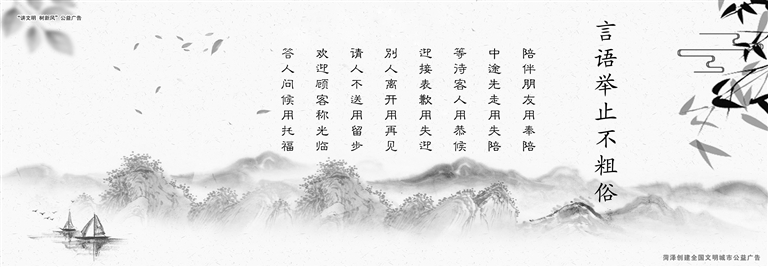 “讲文明 树新风”公益广告
言语举止不粗俗
陪伴朋友用奉陪
中途先走用失陪
等待客人用恭候
迎接表歉用失迎
别人离开用再见
请人不送用留步
欢迎顾客称光临
答人问候用托福
菏泽创建全国文明城市公益广告